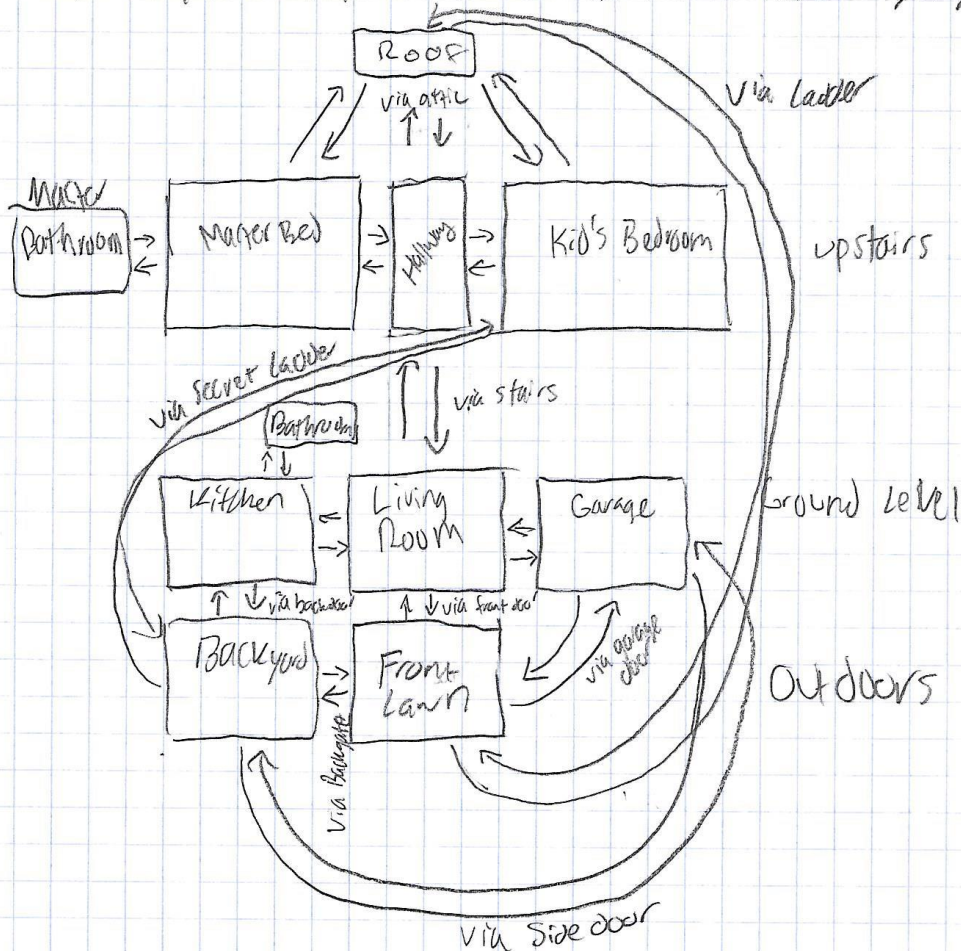 Roof
via attic
via Ladder
Master
Bathroom
Mater Bed
Hallway
Kid's Bedroom
upstairs
via Secret Ladder
via stairs
Bathroom
Kitchen
Living
Room
Garage
Ground Level
via backdoor
via front door
Backyard
Front
Lawn
via garage
door
Outdoors
via Backgate
via Side door